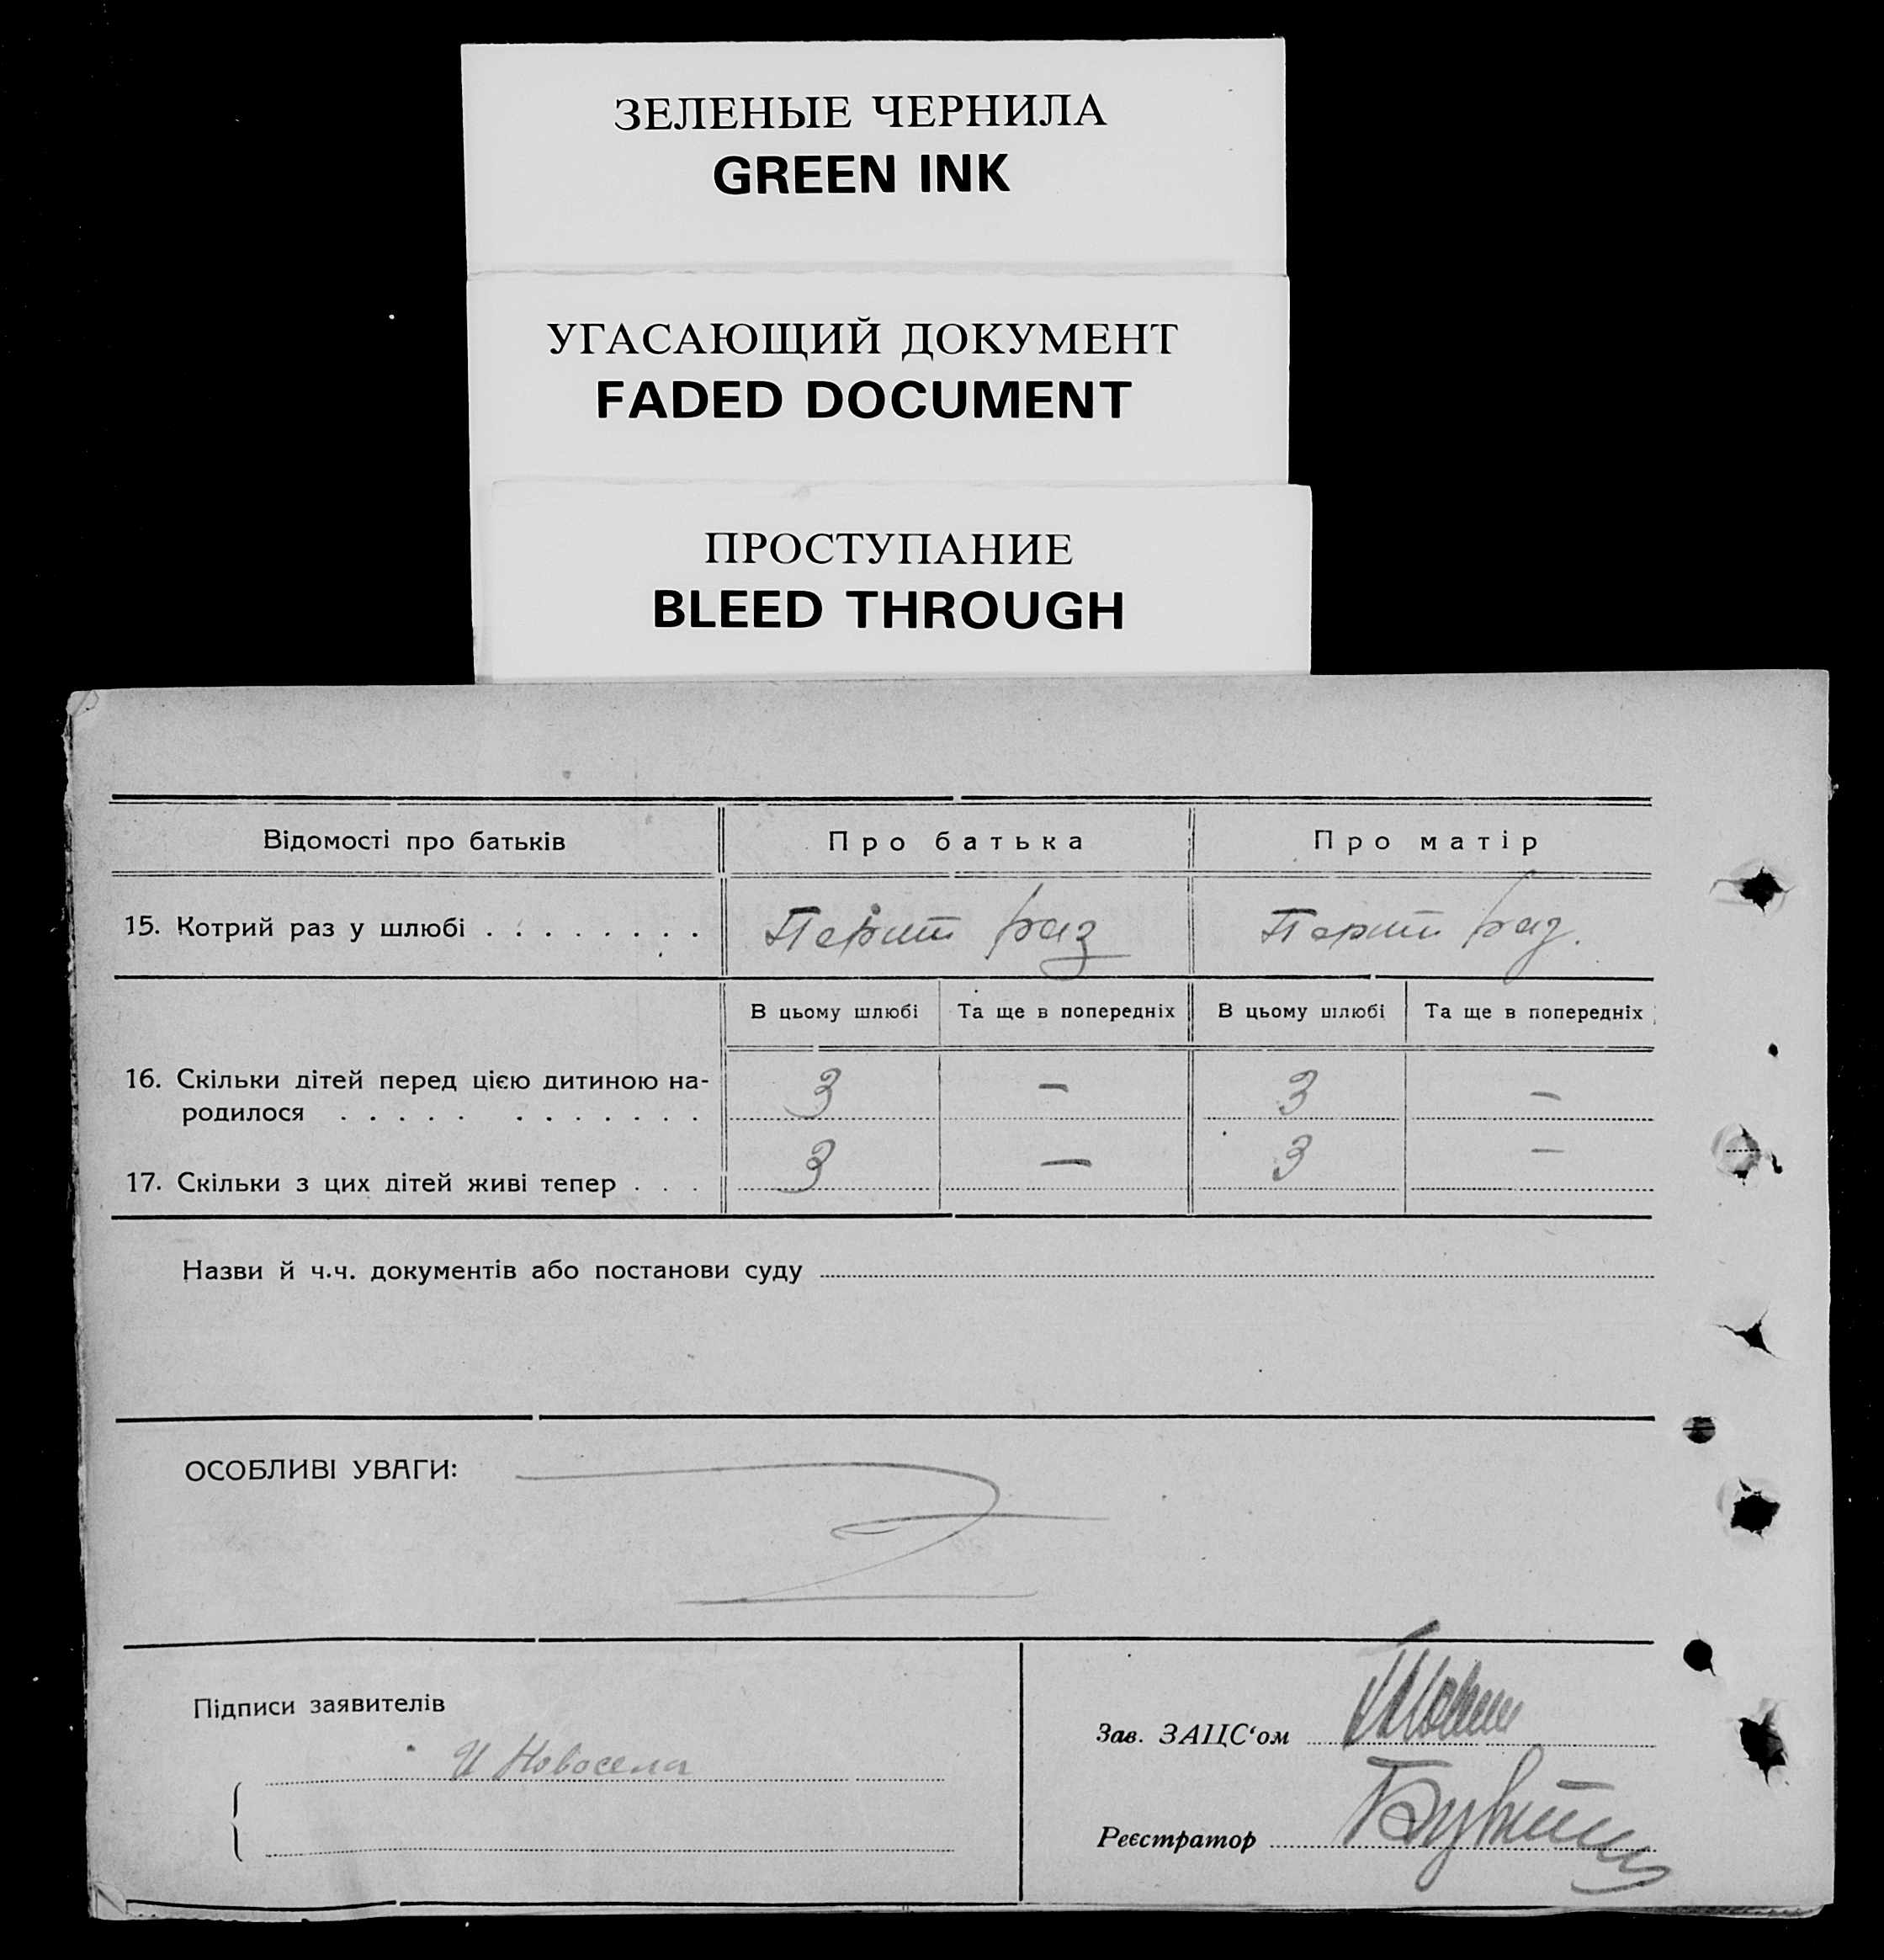 ЗЕЛЕНЫЕ ЧЕРНИЛА
GREEN INK
УГАСАЮЩИЙ ДОКУМЕНТ
FADED DOCUMENT
ПРОСТУПАНИЕ
BLEED THROUGH
Відомості про батьків Про батька Про матір
15. Котрий раз у шлюбі . . . . . . . . Перший раз Перший раз.
В цьому шлюбі Та ще в попередніх В цьому шлюбі Та ще в попередніх
16. Скільки дітей перед цією дитиною на- 3 — 3 —
родилося . . . . . . . . . . . .
17. Скільки з цих дітей живі тепер . . . 3 — 3 —
Назви й ч.ч. документів або постанови суду
ОСОБЛИВІ УВАГИ:
Підписи заявителів
И Новосела
Зав. ЗАЦС‘ом
Реєстратор